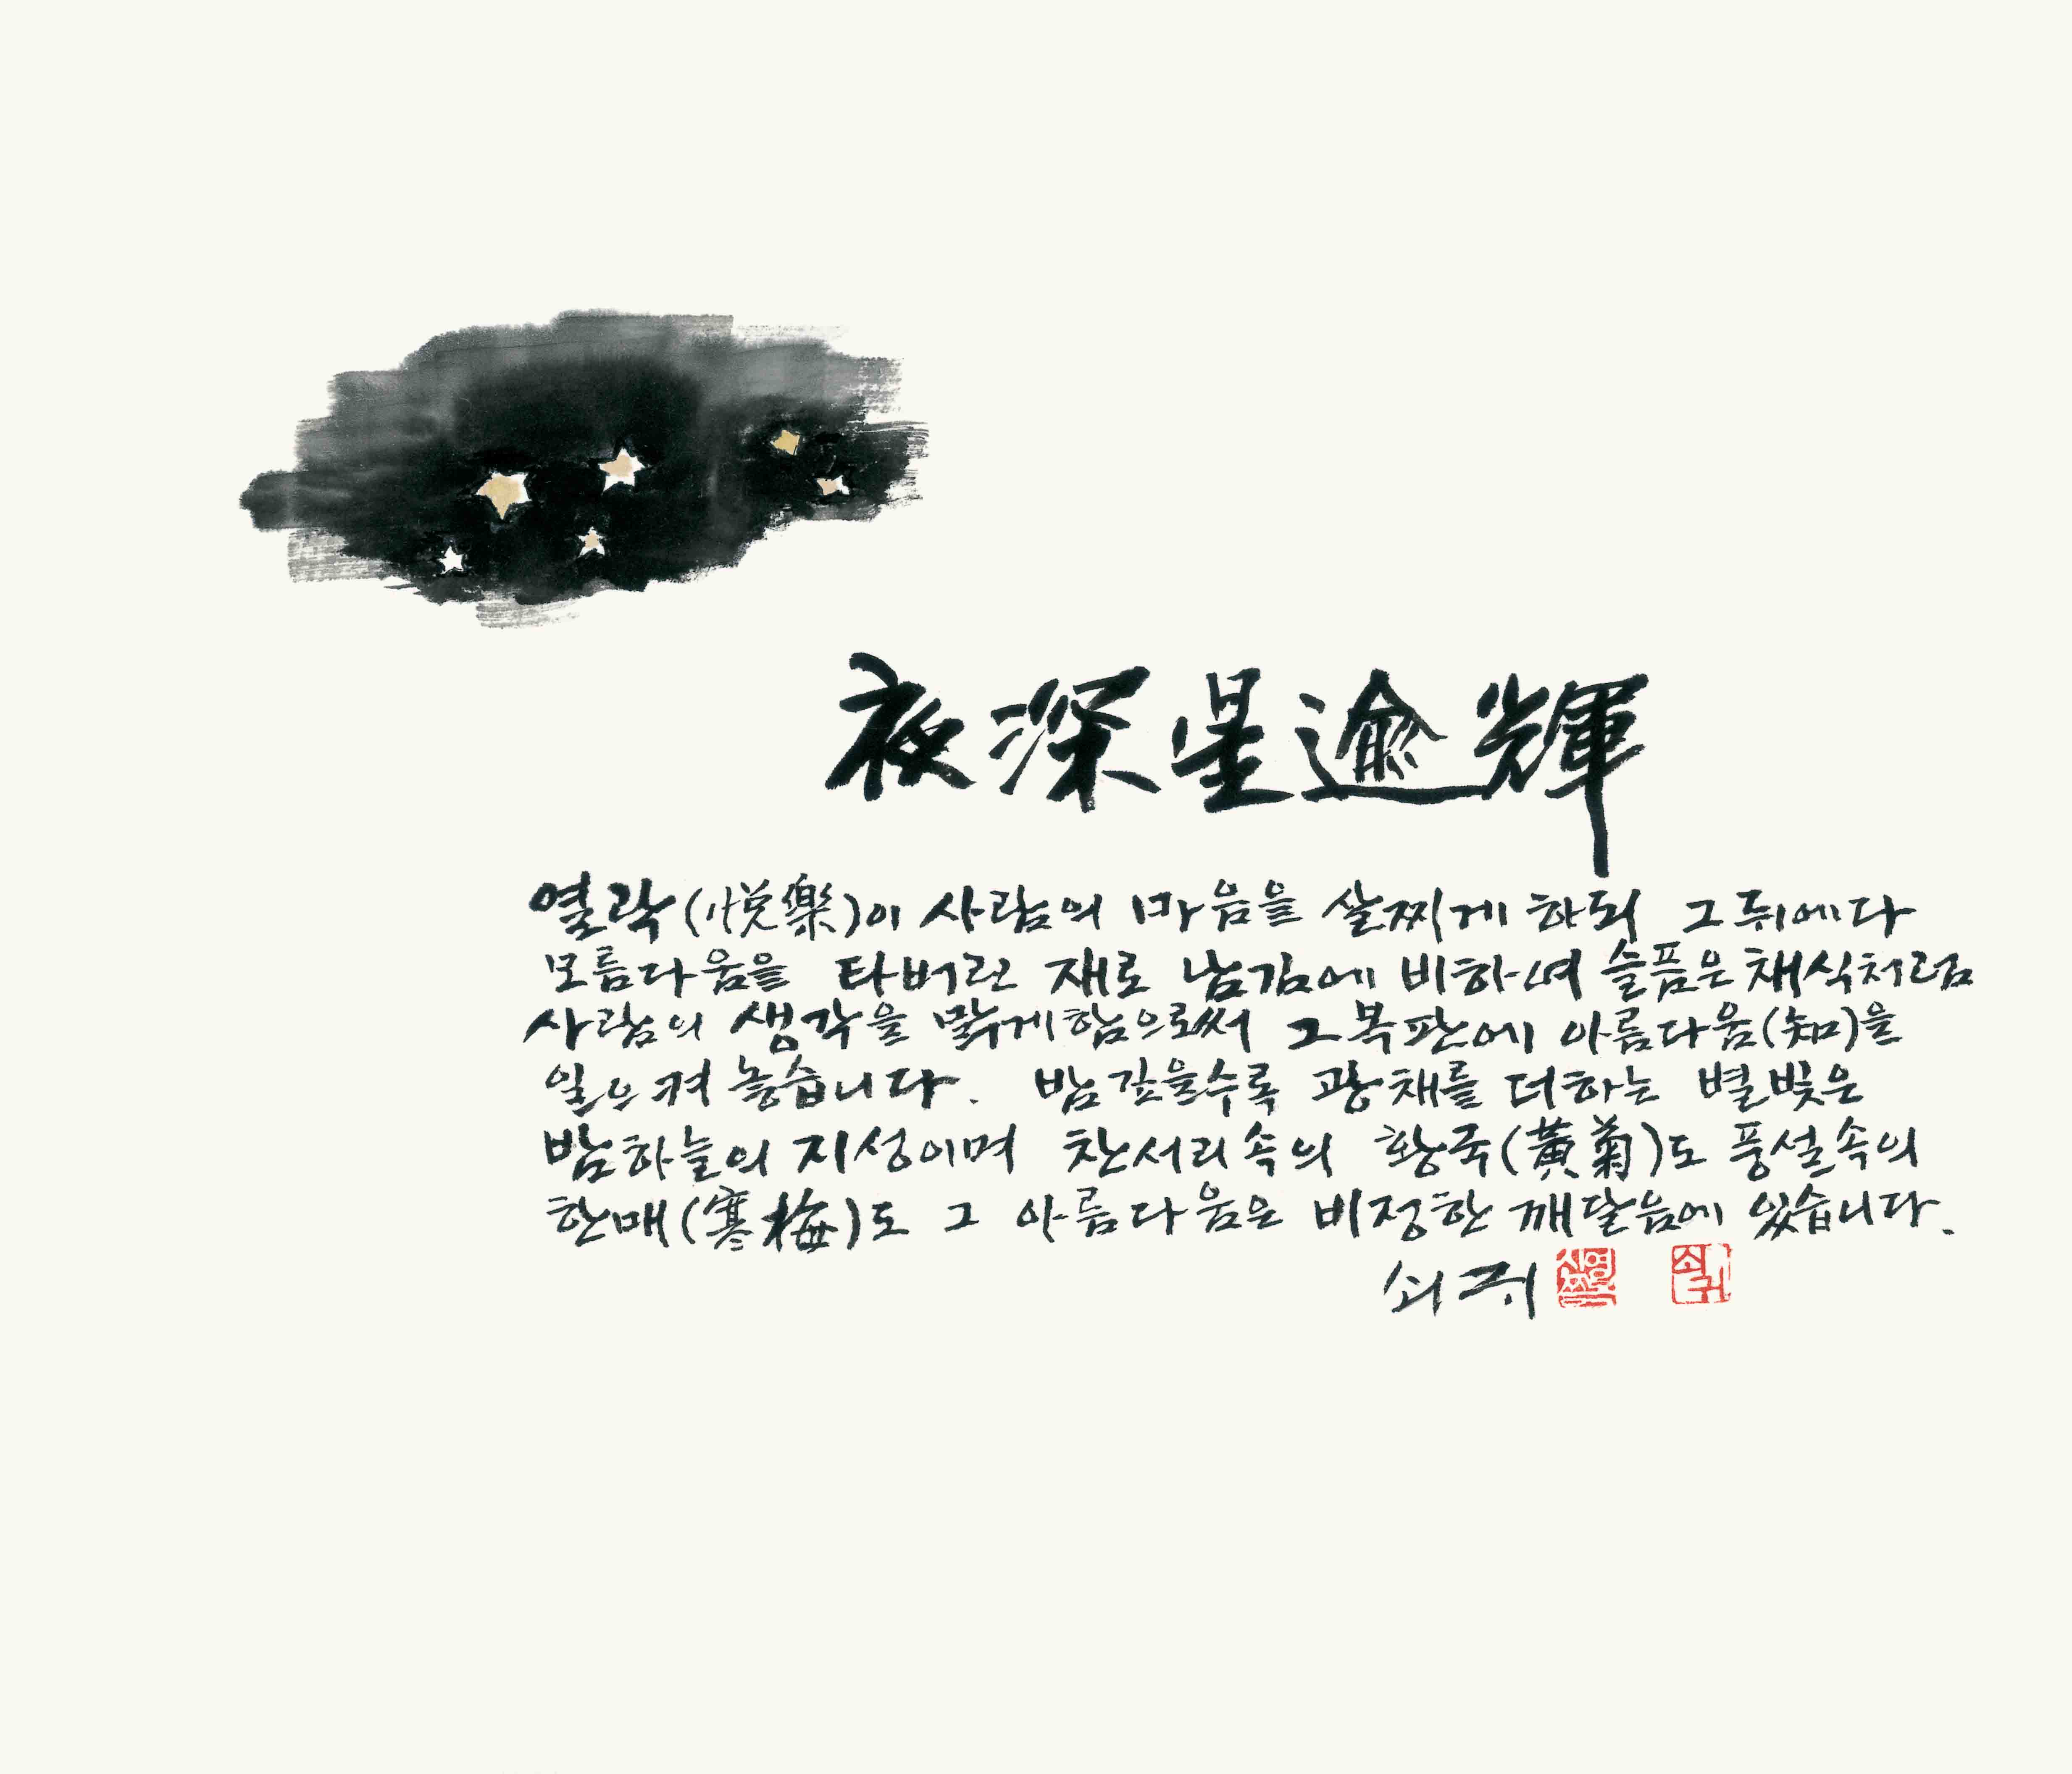 夜深星逾輝
열락(悅樂)이 사람의 마음을 살찌게 하되 그 뒤에다
모름다움을 타버린 재로 남김에 비하여 슬픔은 채식처럼
사람의 생각을 맑게함으로써 그 복판에 아름다움(知)을
일으켜 놓습니다. 밤 깊을수록 광채를 더하는 별빛은
밤하늘의 지성이며 찬서리속의 황국(黃菊)도 풍설속의
한매(寒梅)도 그 아름다움은 비정한 깨달음에 있습니다.
쇠귀
쇠귀